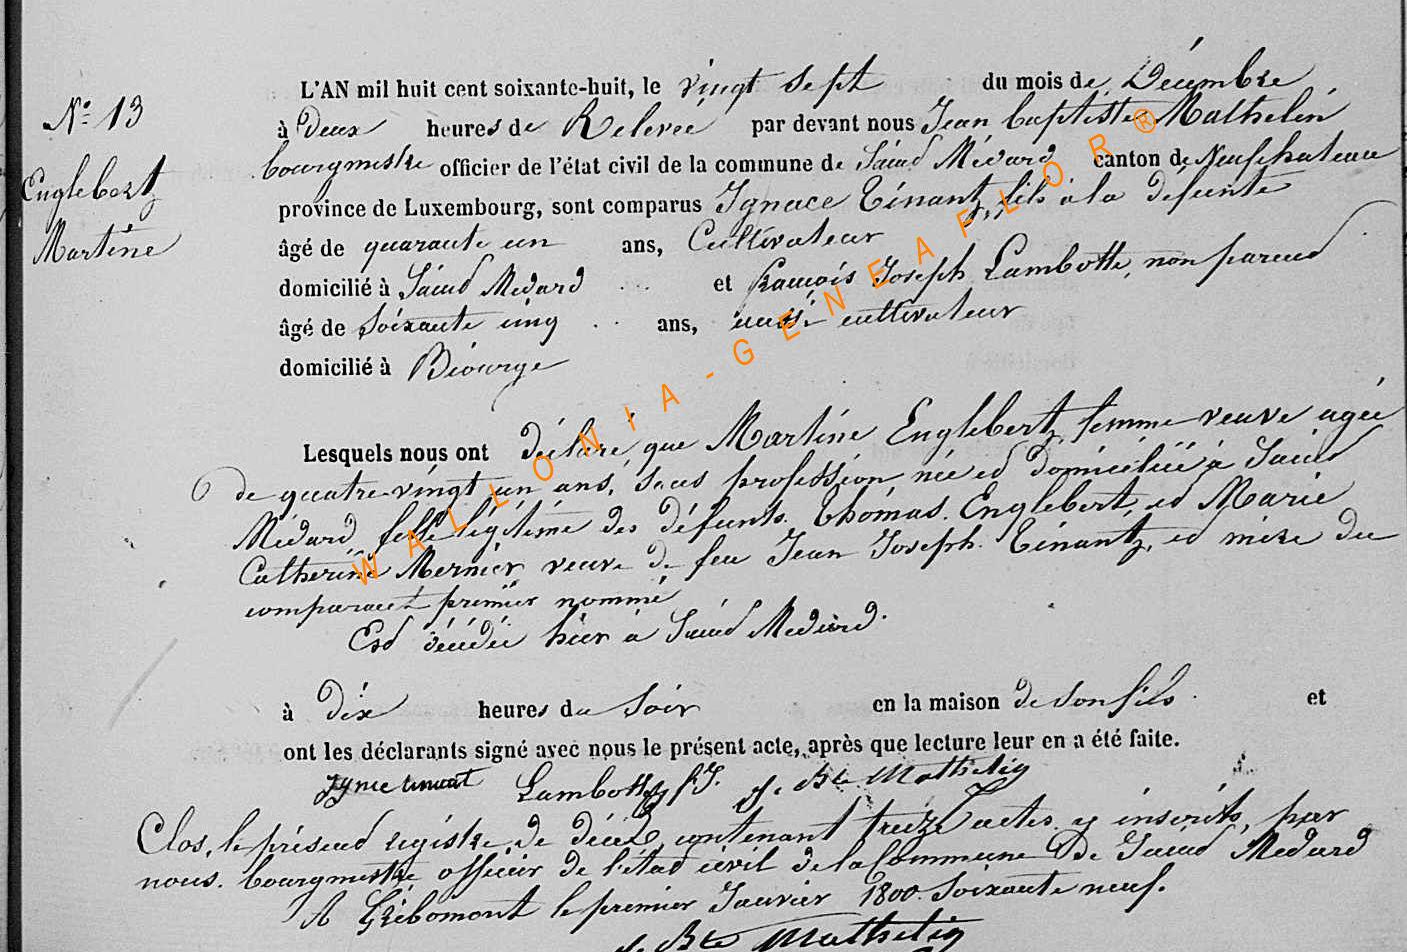 L'AN mil huit cent soixante-huit, le vingt sept du mois de Décembre
N° 13
à Deux heures de Relevee par devant nous Jean baptiste Mathelin
bourgmestre officier de l'état civil de la commune de Saint Médard canton de Neufchateau
Englebert
Martine
province de Luxembourg, sont comparus Ignace Tinant, fils à la défunte
âgé de quarante un ans, Cultivateur
domicilié à Saint Medard et françois Joseph Lambotte, non parent
âgé de soixante cinq ans, aussi cultivateur
domicilié à Biourge
Lesquels nous ont déclaré que Martine Englebert, femme veuve agée
de quatre-vingt un ans, sans profession née et domiciliée à Saint
Médard, fille légitime des défunts Thomas Englebert, et Marie
Catherine Mernier veuve de feu Jean Joseph Tinant, et mère du
comparant premier nommé
Est décédée hier à Saint Medard.
à dix heures du soir en la maison de son fils et
ont les déclarants signé avec nous le présent acte, après que lecture leur en a été faite.
Lambotte f J. J. Bte Mathelin
Clos, le présent registre de décès, contenant treize actes y inscrits, par
nous. bourgmestre officier de l'état civil de la Commune de Saint Medard
A Gribomont le premier Janvier 1800 soixante neuf.
J. Bte Mathelin
WALLONIA-GENEAFLOR®